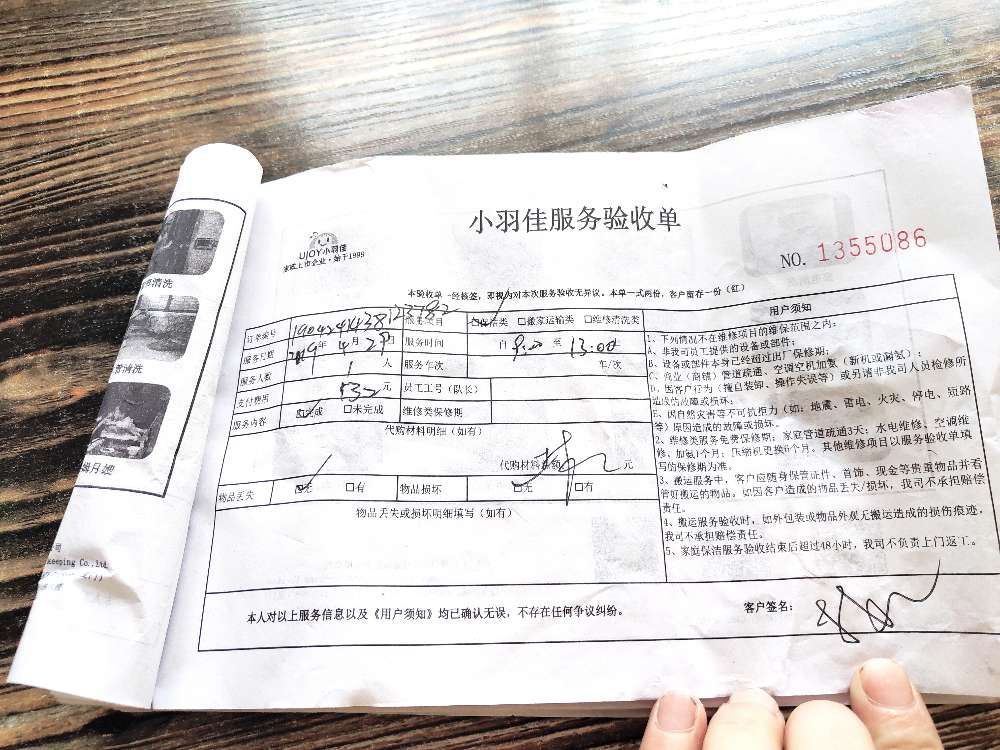 小羽佳服务验收单
UJOY小羽佳
家政上市企业·始于1999
NO. 1355086
本验收单一经核签，即视为对本次服务验收无异议。本单一式两份，客户留存一份（红）
订单编号 服务项目 保洁类 搬家运输类 维修清洗类
服务日期 2019年4月29日 服务时间 自 9:00 至 13:00
服务人数 1人 服务车次 车/次
支付费用 元 员工工号（队长）
服务内容 完成 未完成 维修类保修期
代购材料明细（如有）
代购材料金额 元
物品丢失 无 有 物品损坏 无 有
物品丢失或损坏明细填写（如有）
用户须知
1、下列情况不在维修项目的维保范围之内：
A、非我司员工提供的设备或部件；
B、设备或部件本身已经超过出厂保修期；
C、营业（商铺）管道疏通、空调空机加氨（新机或漏氨）；
D、因客户行为（擅自装卸、操作失误等）或另请非我司人员检修所
造成故障或损坏；
E、因自然灾害等不可抗拒力（如：地震、雷电、火灾、停电、短路
等）原因造成的故障或损坏。
2、维修类服务免费保修期：家庭管道疏通3天；水电维修、空调维
修、加氨1个月；压缩机更换6个月，其他维修项目以服务验收单填
写的保修期为准。
3、搬运服务中，客户应随身保管证件、首饰、现金等贵重物品并看
管好搬运的物品。如因客户造成的物品丢失/损坏，我司不承担赔偿
责任。
4、搬运服务验收时，如外包装或物品外观无搬运造成的损伤痕迹，
我司不承担赔偿责任。
5、家庭保洁服务验收结束后超过48小时，我司不负责上门返工。
本人对以上服务信息以及《用户须知》均已确认无误，不存在任何争议纠纷。
客户签名：
清洗
清洗
月嫂
司
keeping Co.,Ltd